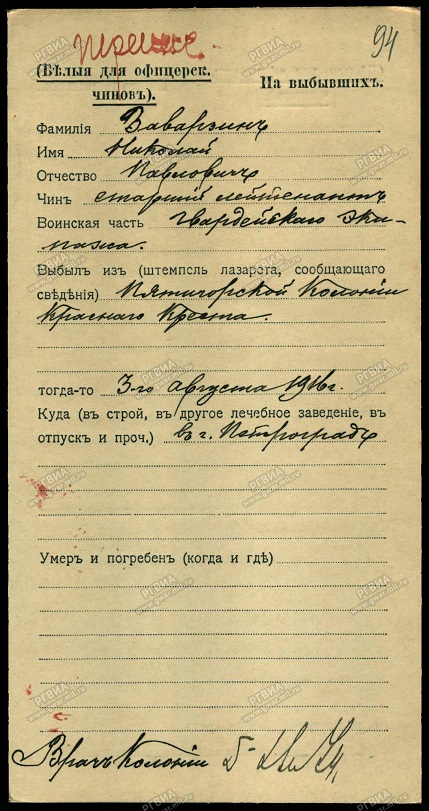 94
(Бѣлыя для офицерск. чиновъ).
На выбывшихъ.
Фамилія Ваварзинъ
Имя Николай
Отчество Павловичъ
Чинъ старшій лейтенантъ
Воинская часть Гвардейскаго эки-
пажа.
Выбылъ из (штемпель лазарета, сообщающаго
свѣдѣнія) Пятигорской Колоніи
Краснаго Креста.
тогда-то 3-го августа 1916 г.
Куда (въ строй, въ другое лечебное заведеніе, въ
отпускъ и проч.) въ г. Петроградъ
Умеръ и погребенъ (когда и гдѣ)
Врачъ Колоніи
РГВИА
www.gwar.mil.ru